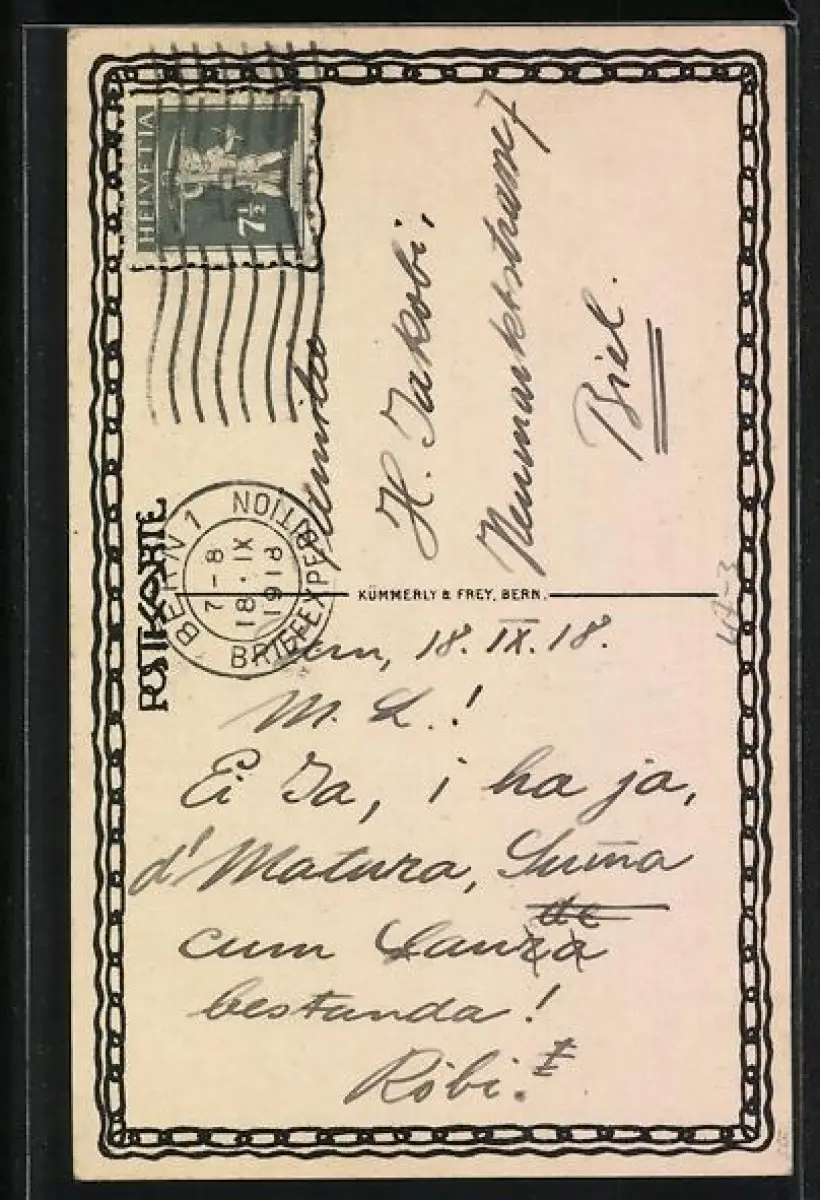 HELVETIA
7½
POSTKARTE
BERN 1
7-8
18.IX
1918
BRIEFEXPEDITION
Familie
H. Jakobi,
Neumarktstrasse 7
Biel.
KÜMMERLY & FREY, BERN.
Bern, 18. IX. 18.
M. L.!
Ei Ja, i ha ja,
d' Matura, Sum̄a
de
cum Lauxa
bestanda!
Röbi.